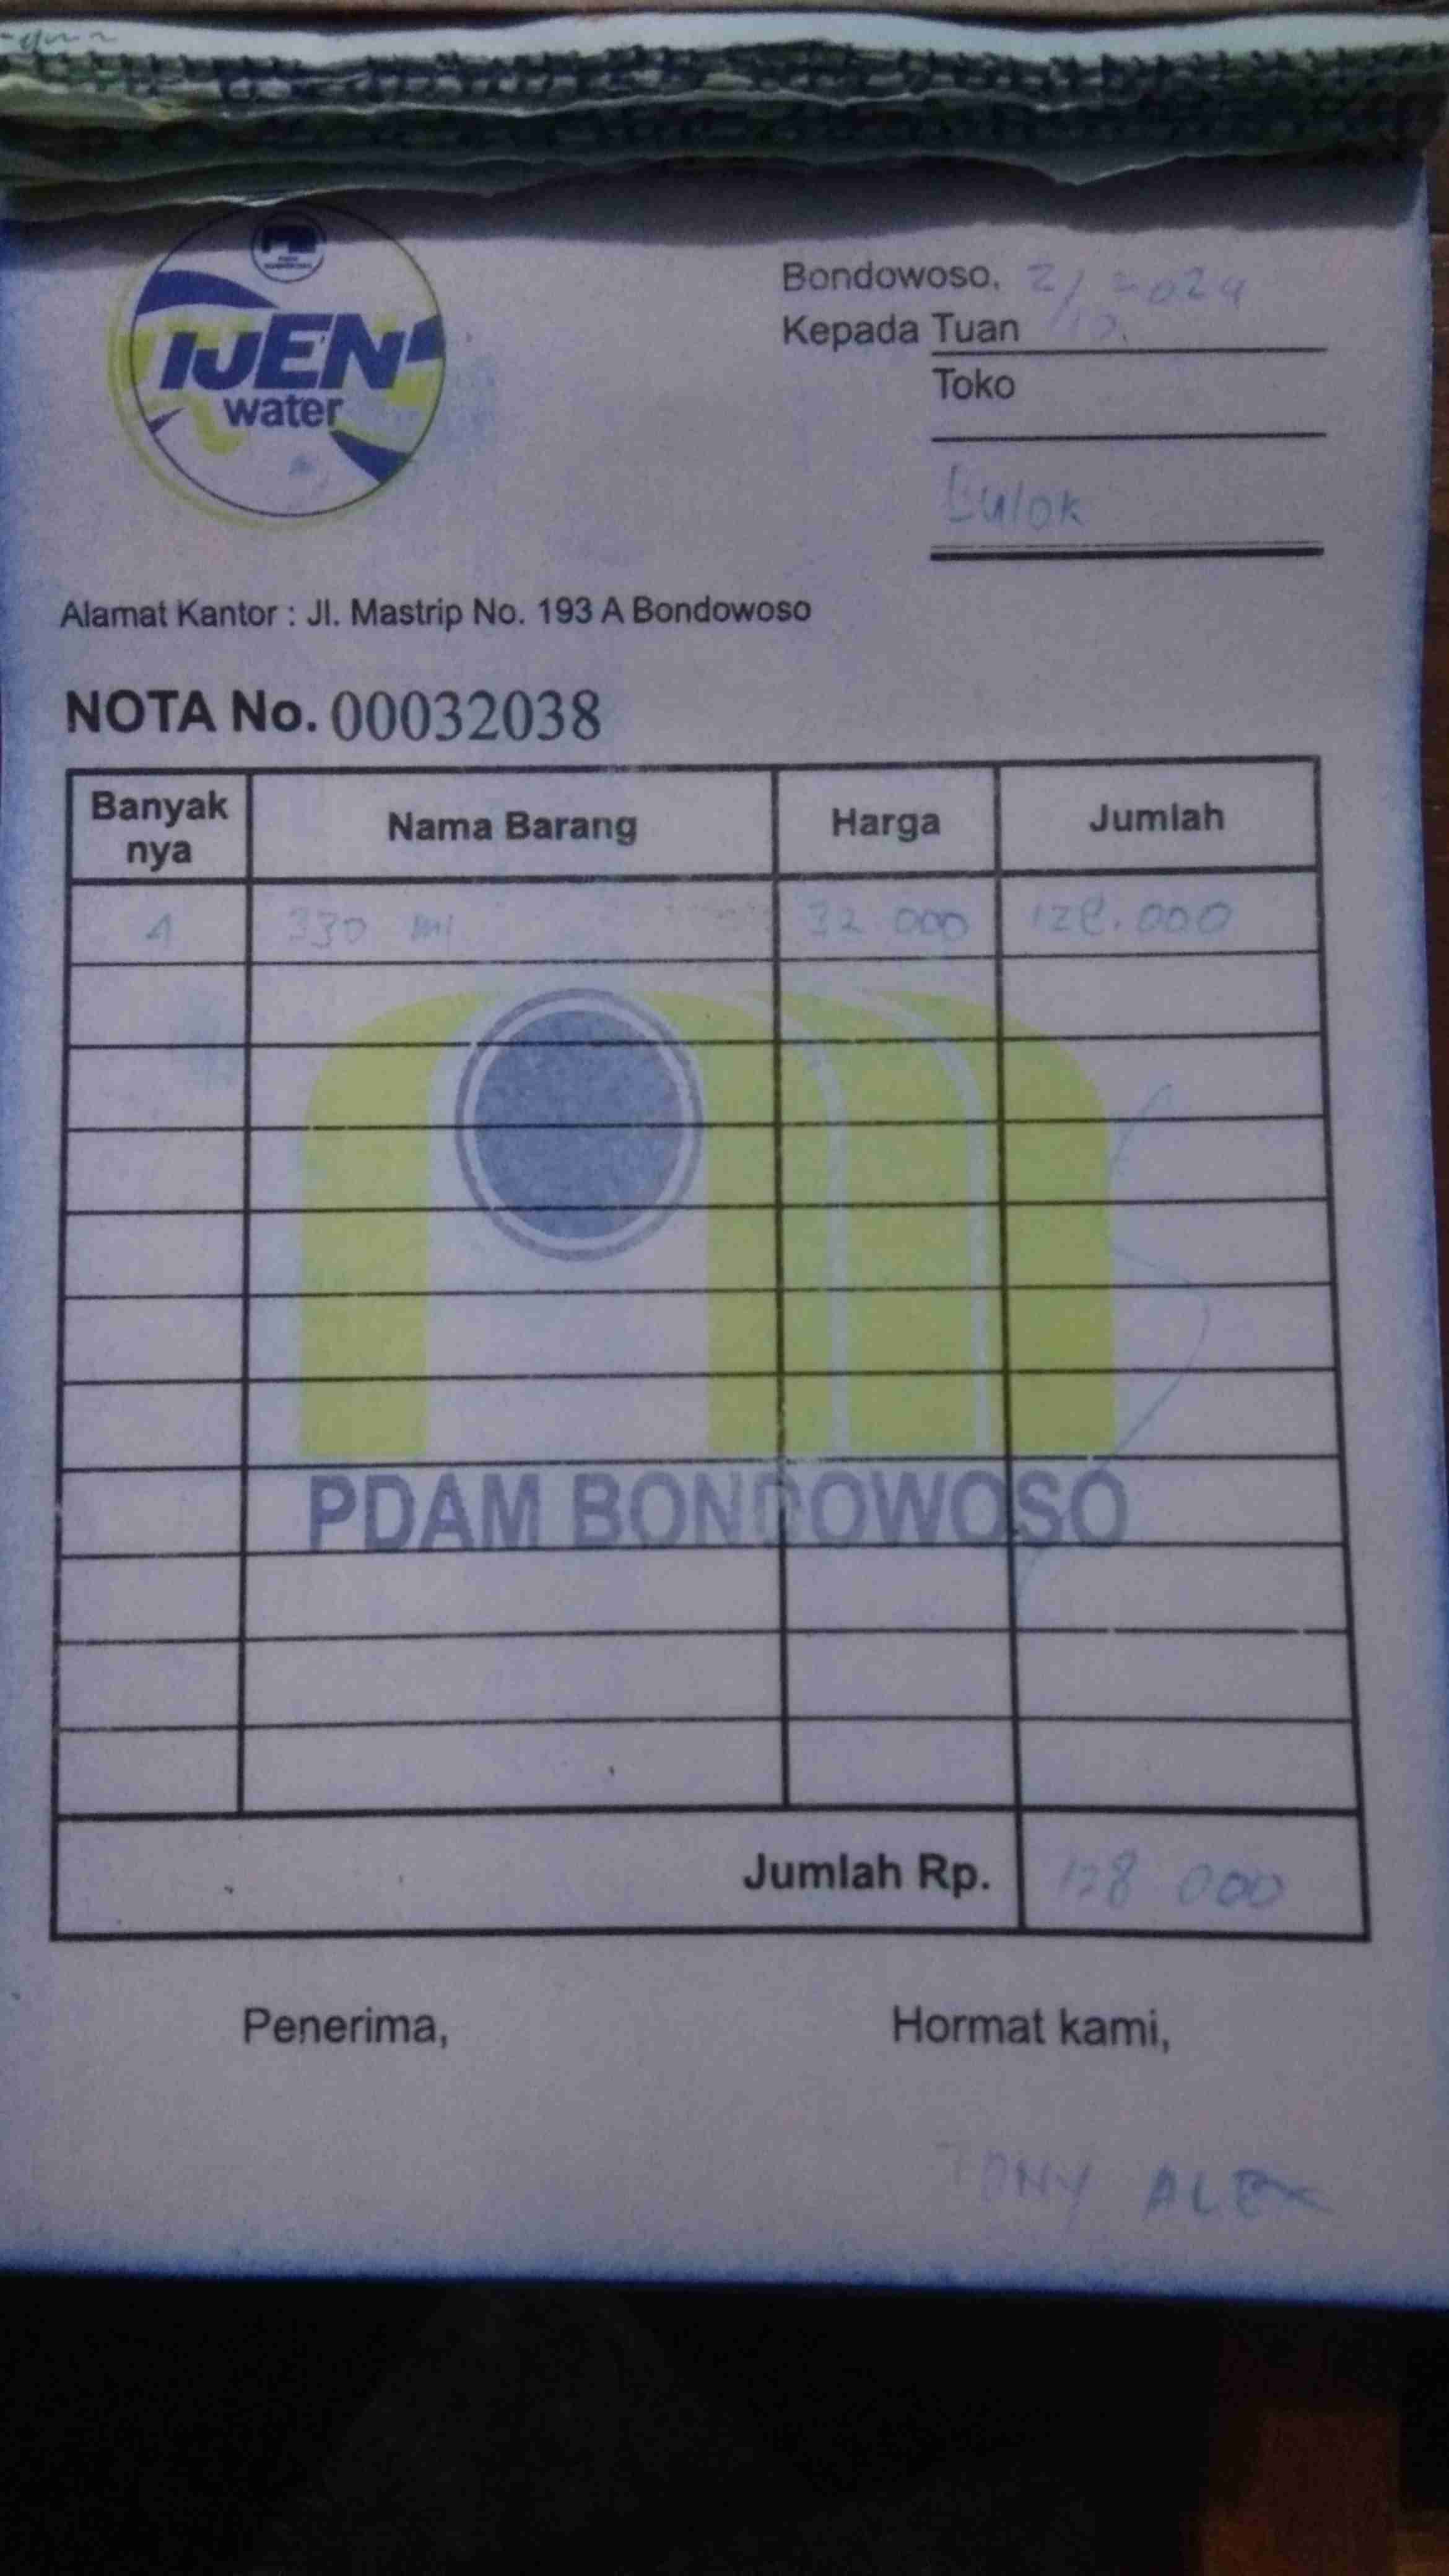 IJEN
water
Bondowoso, 2/10. 2024
Kepada Tuan
Toko
Lulok
Alamat Kantor : Jl. Mastrip No. 193 A Bondowoso
NOTA No. 00032038
Banyak nya Nama Barang Harga Jumlah
4 330 ml 32 000 128.000
PDAM BONDOWOSO
Jumlah Rp. 128 000
Penerima, Hormat kami,
TONY ALEX